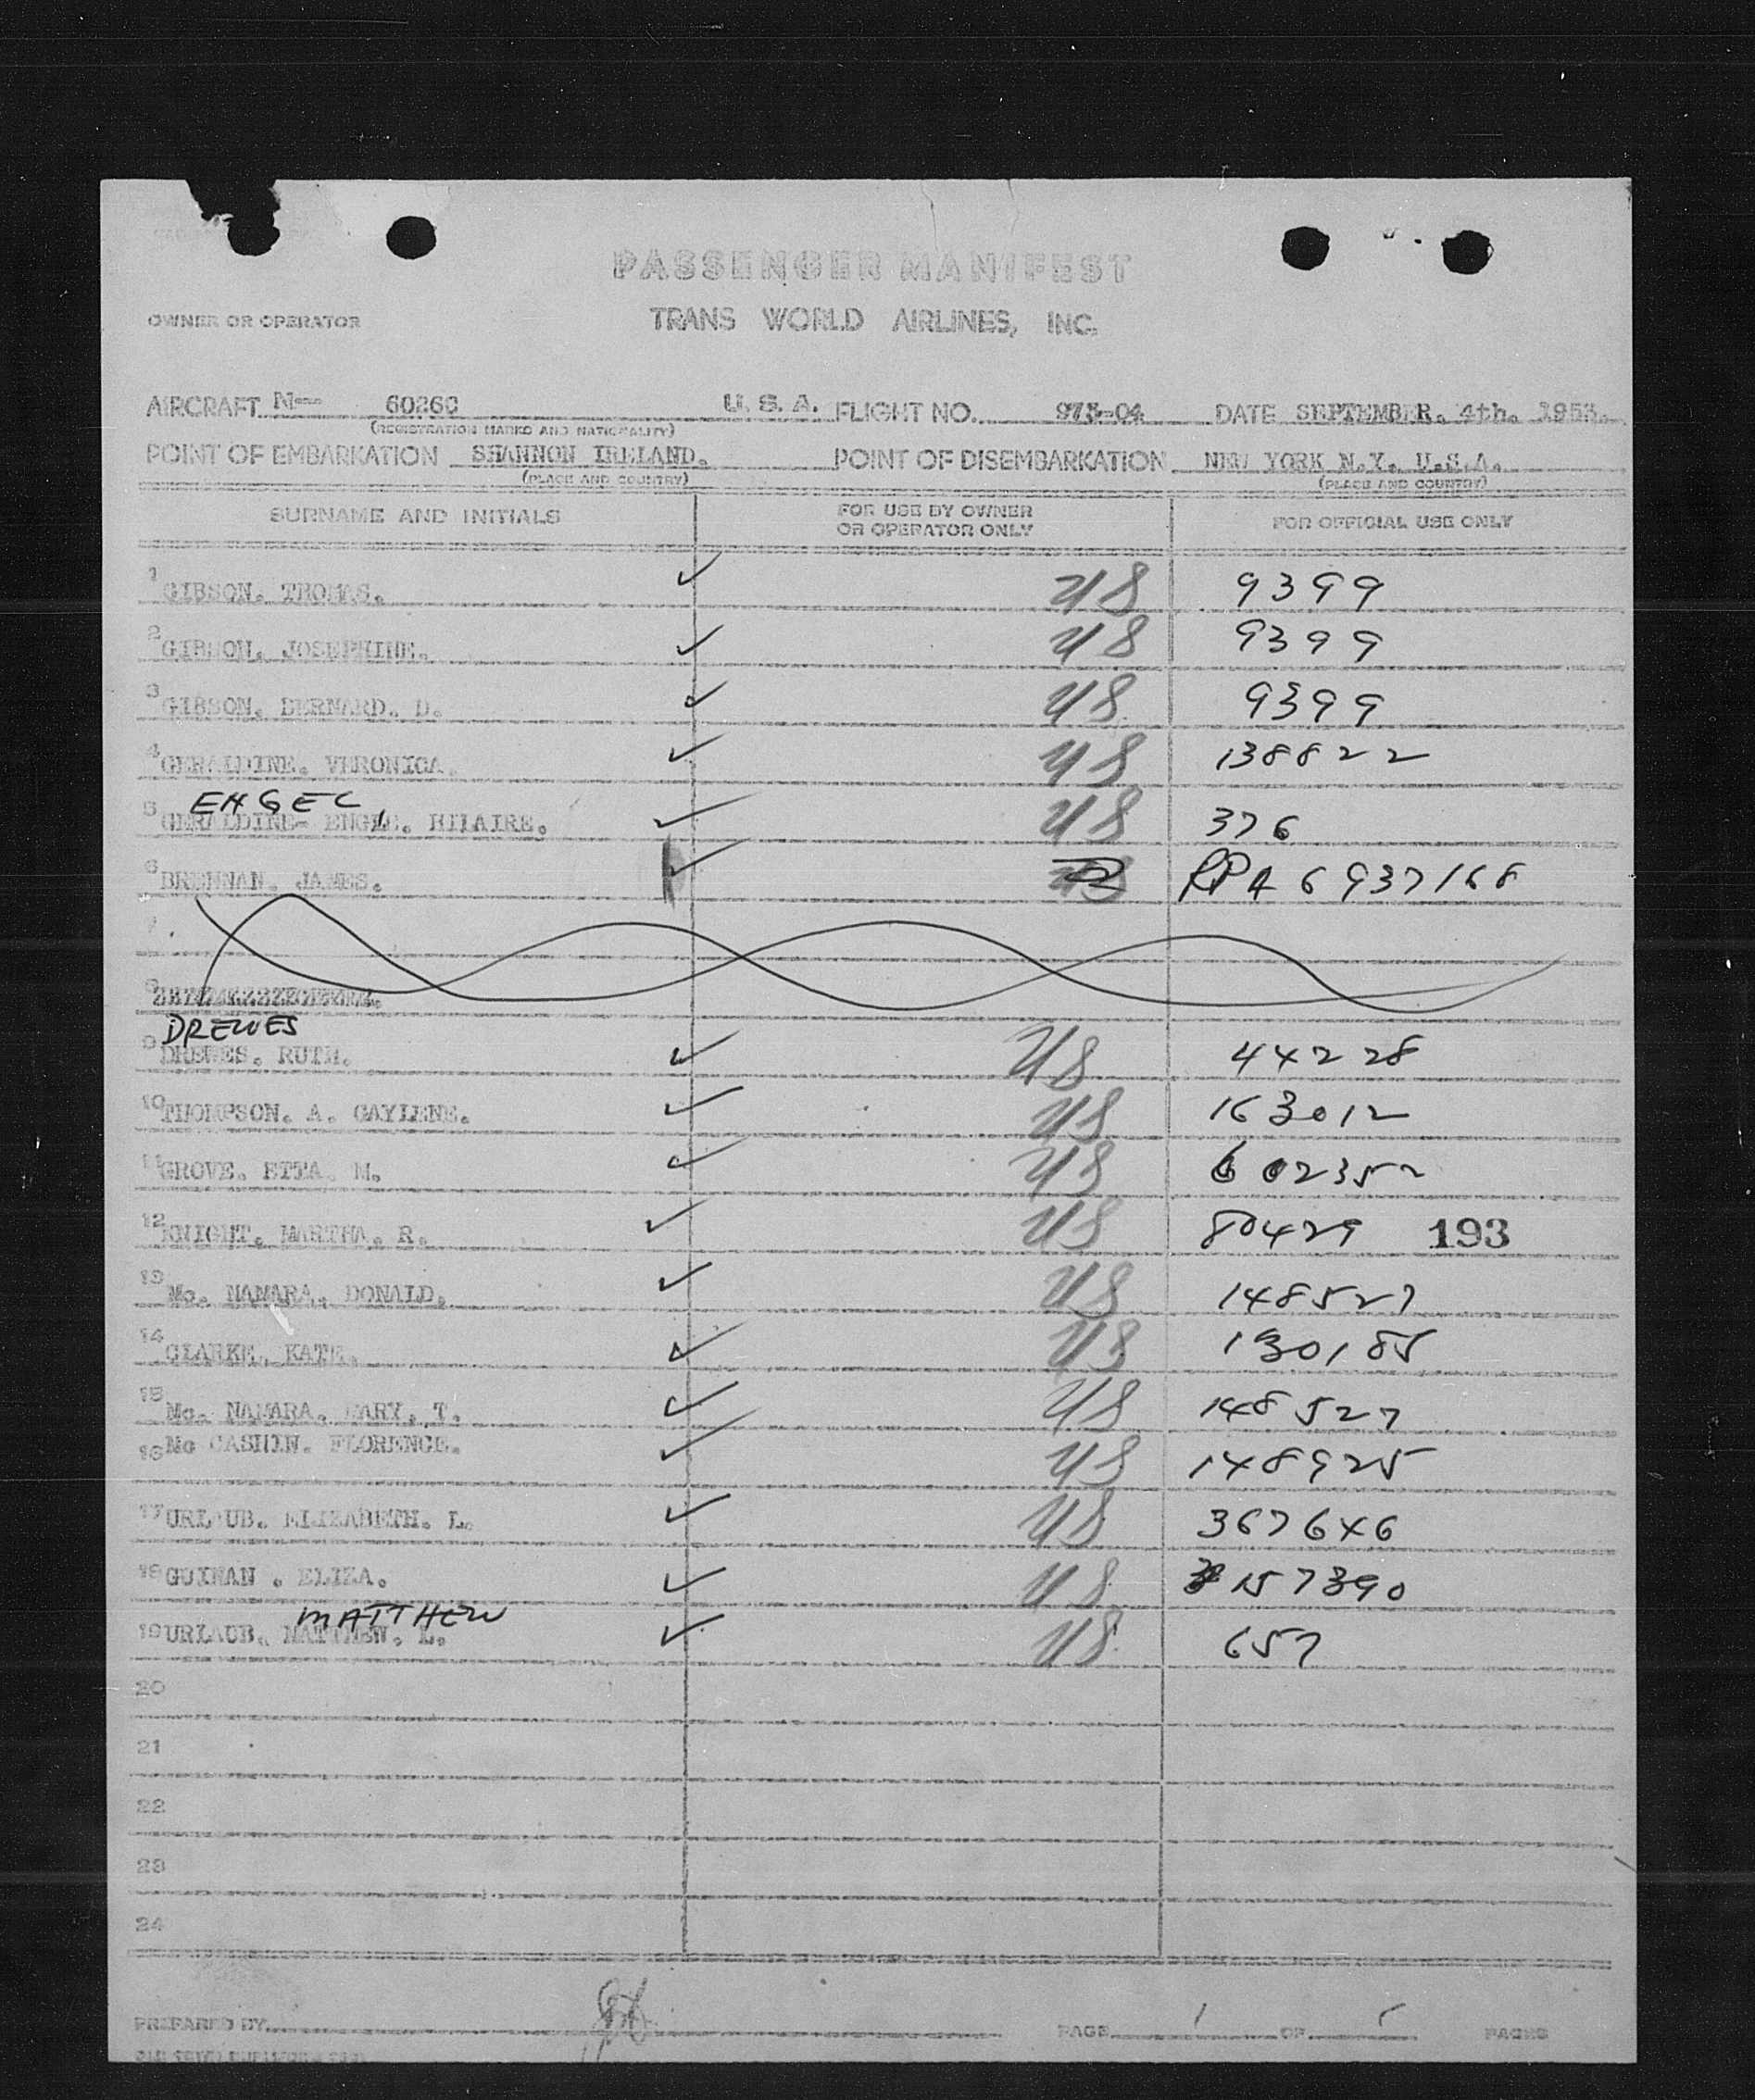 PASSENGER MANIFEST
OWNER OR OPERATOR TRANS WORLD AIRLINES, INC.
AIRCRAFT N— 6026C U. S. A. FLIGHT NO. 973-04 DATE SEPTEMBER. 4th. 1953.
(REGISTRATION MARKS AND NATIONALITY)
POINT OF EMBARKATION SHANNON IRELAND. POINT OF DISEMBARKATION NEW YORK N.Y. U.S.A.
(PLACE AND COUNTRY) (PLACE AND COUNTRY)
SURNAME AND INITIALS FOR USE BY OWNER OR OPERATOR ONLY FOR OFFICIAL USE ONLY
1 GIBSON. THOMAS. ✓ US 9399
2 GIBSON. JOSEPHINE. ✓ US 9399
3 GIBSON. BERNARD. D. ✓ US 9399
4 GERALDINE. VERONICA. ✓ US 138822
ENGEL
5 GERALDINE- ENGLE. HILAIRE. ✓ US 376
6 BRENNAN. JAMES. ✓ RPA 6937168
7
8
DREWES
9 DREWES. RUTH. ✓ US 44228
10 THOMPSON. A. GAYLENE. ✓ US 163012
11 GROVE. ETTA. M. ✓ US 602352
12 KNIGHT. MARTHA. R. ✓ US 80429 193
13 Mc. NAMARA. DONALD. ✓ US 148527
14 CLARKE. KATE. ✓ US 130185
15 Mc. NAMARA. MARY. T. ✓ US 148527
16 Mc CASHIN. FLORENCE. ✓ US 148925
17 URLAUB. ELIZABETH. L. ✓ US 367646
18 GUINAN . ELIZA. ✓ US 157390
MATTHEW
19 URLAUB. MATTHEW. L. ✓ US 657
20
21
22
23
24
PREPARED BY PAGE 1 OF PAGES